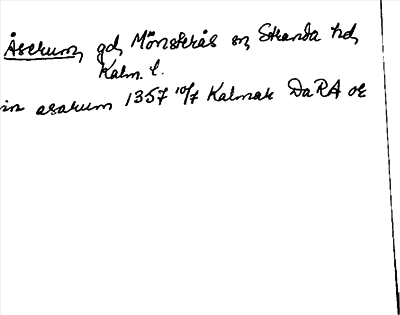 Åserum, gd, Mönsterås sn, Stranda hd,
Kalm. l.
in asarum 1357 10/7 Kalmar DaRA or